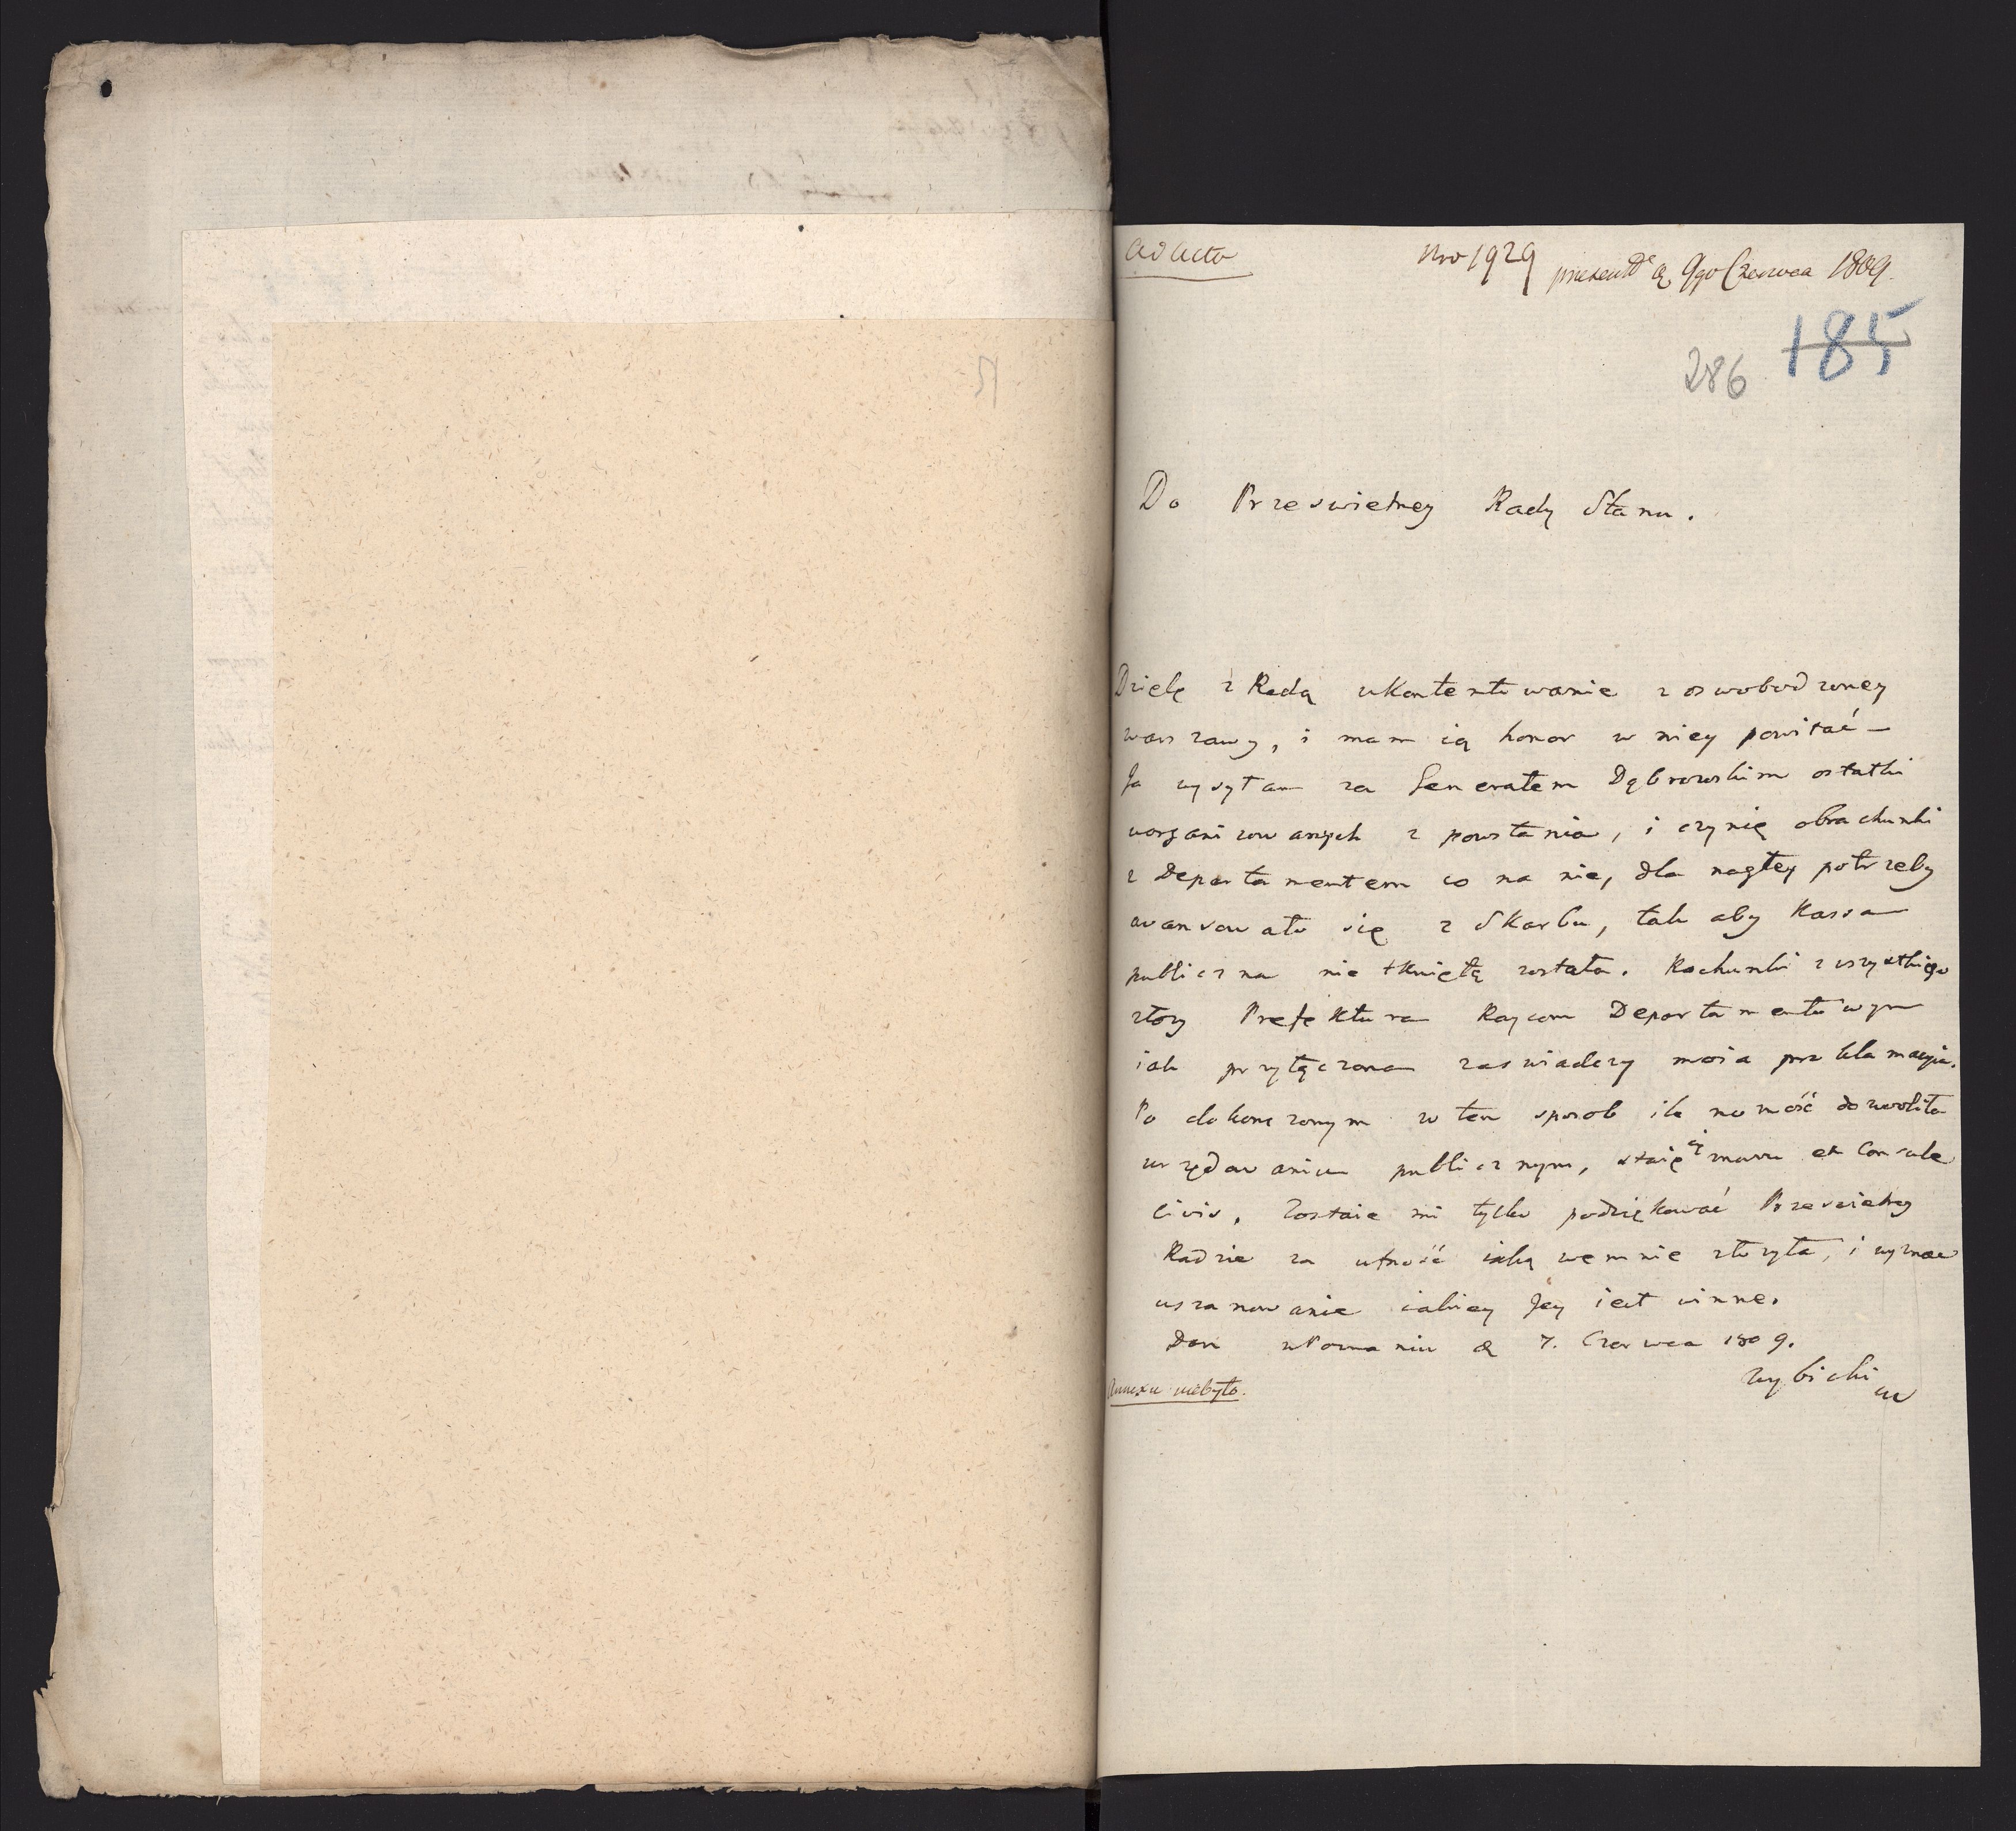 ad acta
Nro 1929 praesent de d. 9go Czerwca 1809.
185
286
Do Prześwietney Rady Stanu.
Dzielę z Radą ukontentowanie z oswobodzoney
warszawy, i mam ią honor w niey powitać –
Ja wysyłam za Generałem Dąbrowskim ostatki
uorganizowanych z powstania, i czynię obrachunki
z Departamentem co na nie, dla nagłey potrzeby
avansowało się z Skarbu, tak aby Kassa
publiczna nie tkniętą została. Rachunki z wszystkiego
złoży Prefektura Raycom Departamentowym
iak przyłączona zaswiadczy moia proklamacyia.
Po dokonczonym w ten sposob ile możność dozwoliła
urzędowaniu publicznym, staię się znowu ex Consule
Civis. Zostaie mi tylko podziękować Przeswietney
Radzie za ufność iaką we mnie złożyła, i wyznać
uszanowanie iakiey Jey iest winne.
Dan w Poznaniu d. 7. Czerwca 1809.
Wybicki
Annexu niebyło.